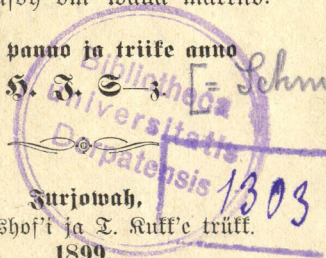 panno ja triike anno
H. J. S—z. [= Schm
Bibliotheca
Universitatis
Dorpatensis
1303
Jurjowah,
shof'i ja T. Kukk'e trükk.
1899